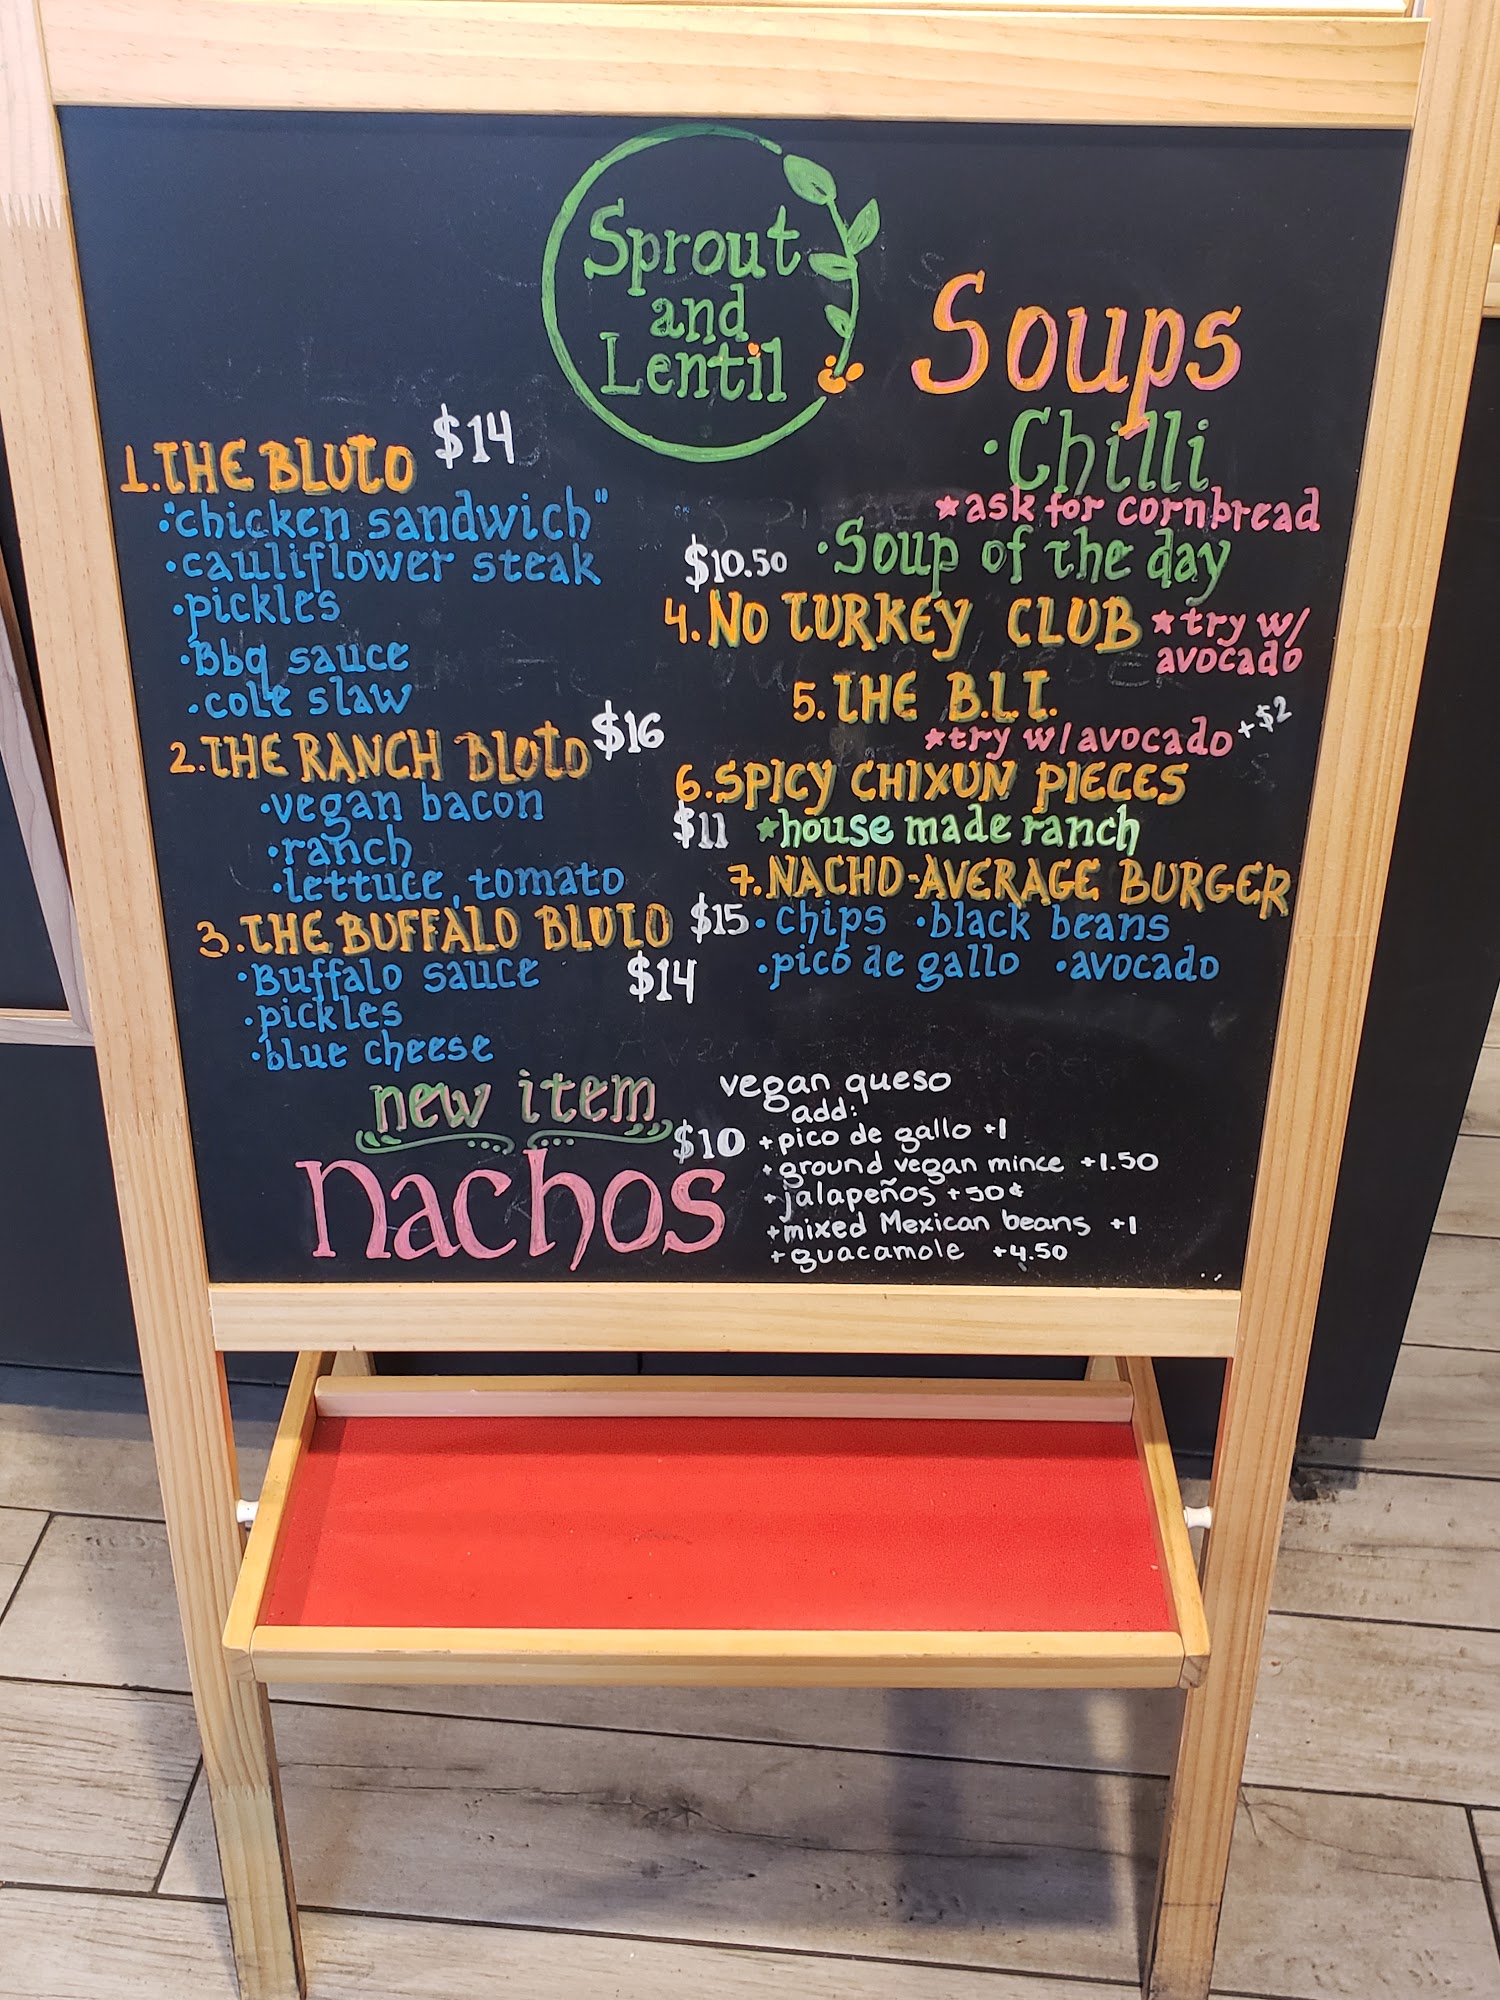 Sprout
and
Lentil
1. THE BLUTO $14
"chicken sandwich"
• cauliflower steak
• pickles
• Bbq sauce
• cole slaw
2. THE RANCH BLUTO $16
• vegan bacon
• ranch
• lettuce, tomato
3. THE BUFFALO BLUTO
• Buffalo sauce $14
• pickles
• blue cheese
Soups
• Chilli
*ask for cornbread
$10.50 • Soup of the day
4. NO TURKEY CLUB *try w/
avocado
5. THE B.L.T.
*try w/ avocado +$2
6. SPICY CHIXUN PIECES
$11 *house made ranch
7. NACHO-AVERAGE BURGER
$15 • chips • black beans
• pico de gallo • avocado
new item
Nachos
$10
vegan queso
add:
+ pico de gallo +1
+ ground vegan mince +1.50
+ jalapeños +50¢
+ mixed Mexican beans +1
+ guacamole +4.50